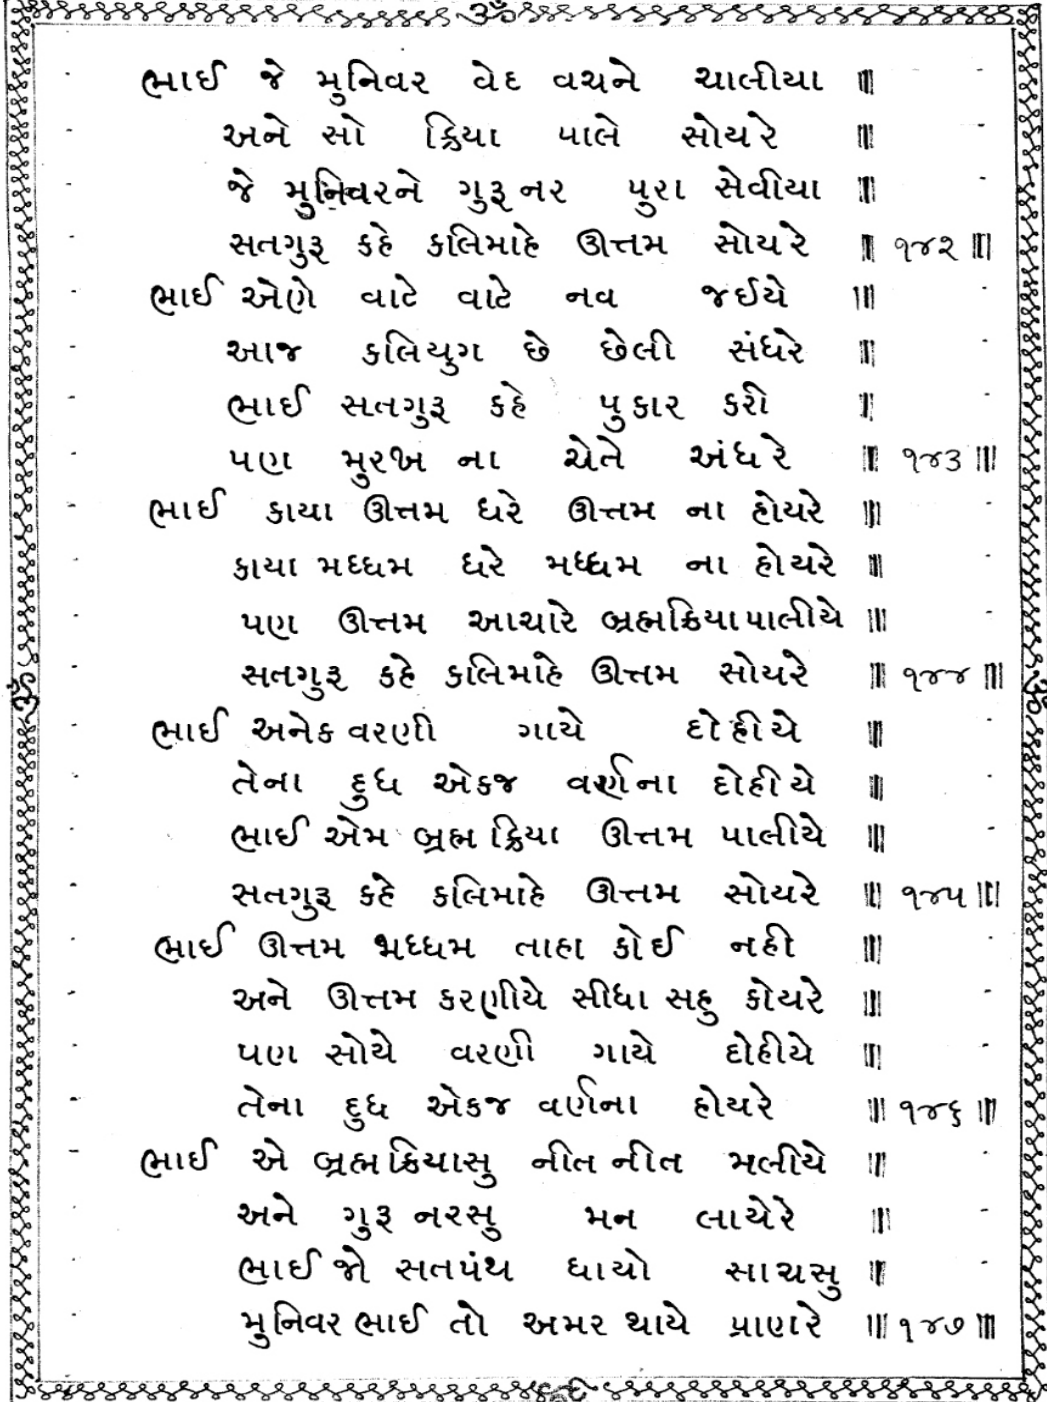 ૐ
ભાઈ જે મુનિવર વેદ વચને ચાલીયા ॥
અને સો ક્રિયા પાલે સોયરે ॥
જે મુનિવરને ગુરૂ નર પુરા સેવીયા ॥
સતગુરૂ કહે કલિમાહે ઊત્તમ સોયરે ॥ ૧૪૨ ॥
ભાઈ એણે વાટે વાટે નવ જઈયે ॥
આજ કલિયુગ છે છેલી સંધરે ॥
ભાઈ સતગુરૂ કહે પુકાર કરી ॥
પણ મુરખ ના ચેતે અંધરે ॥ ૧૪૩ ॥
ભાઈ કાયા ઊત્તમ ધરે ઊત્તમ ના હોયરે ॥
કાયા મધ્ધમ ધરે મધ્ધમ ના હોયરે ॥
પણ ઊત્તમ આચારે બ્રહ્મક્રિયા પાલીયે ॥
સતગુરૂ કહે કલિમાહે ઊત્તમ સોયરે ॥ ૧૪૪ ॥
ભાઈ અનેક વરણી ગાયે દોહીયે ॥
તેના દુધ એકજ વર્ણના દોહીયે ॥
ભાઈ એમ બ્રહ્મ ક્રિયા ઊત્તમ પાલીયે ॥
સતગુરૂ કહે કલિમાહે ઊત્તમ સોયરે ॥ ૧૪૫ ॥
ભાઈ ઊત્તમ મધ્ધમ તાહા કોઈ નહી ॥
અને ઊત્તમ કરણીયે સીધા સહુ કોયરે ॥
પણ સોયે વરણી ગાયે દોહીયે ॥
તેના દુધ એકજ વર્ણના હોયરે ॥ ૧૪૬ ॥
ભાઈ એ બ્રહ્મક્રિયાસુ નીત નીત મલીયે ॥
અને ગુરૂ નરસુ મન લાયેરે ॥
ભાઈ જો સતપંથ ધાયો સાચસુ ॥
મુનિવર ભાઈ તો અમર થાયે પ્રાણરે ॥ ૧૪૭ ॥
ૐ
ૐ